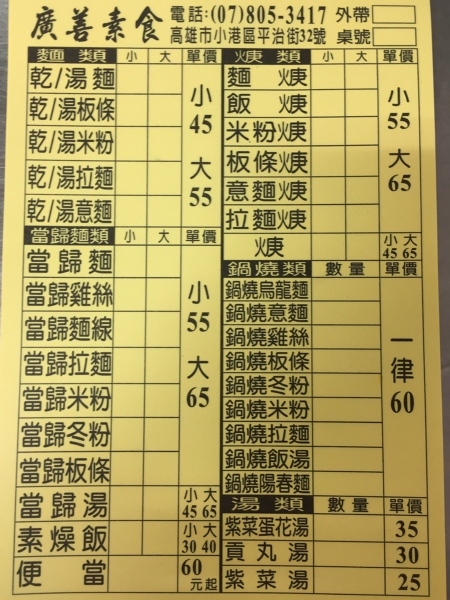 廣善素食 電話:(07)805-3417 外帶
高雄市小港區平治街32號 桌號
麵類 小 大 單價
乾/湯麵
乾/湯板條
乾/湯米粉
乾/湯拉麵
乾/湯意麵
小 45 大 55
當歸麵類 小 大 單價
當歸麵
當歸雞絲
當歸麵線
當歸拉麵
當歸米粉
當歸冬粉
當歸板條
小 55 大 65
當歸湯 小 大 45 65
素燥飯 小 大 30 40
便當 60元起
焿類 小 大 單價
麵焿
飯焿
米粉焿
板條焿
意麵焿
拉麵焿
小 55 大 65
焿 小 大 45 65
鍋燒類 數量 單價
鍋燒烏龍麵
鍋燒意麵
鍋燒雞絲
鍋燒板條
鍋燒冬粉
鍋燒米粉
鍋燒拉麵
鍋燒飯湯
鍋燒陽春麵
一律60
湯類 數量 單價
紫菜蛋花湯 35
貢丸湯 30
紫菜湯 25